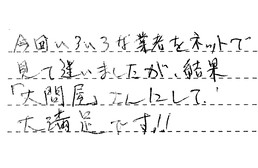 今回いろいろな業者をネットで
見て迷いましたが、結果
「大問屋」さんにして、
大満足です!!